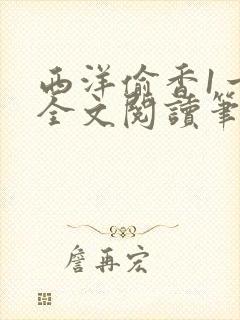 西洋偷香1一
全文閱讀筆
詹再宏